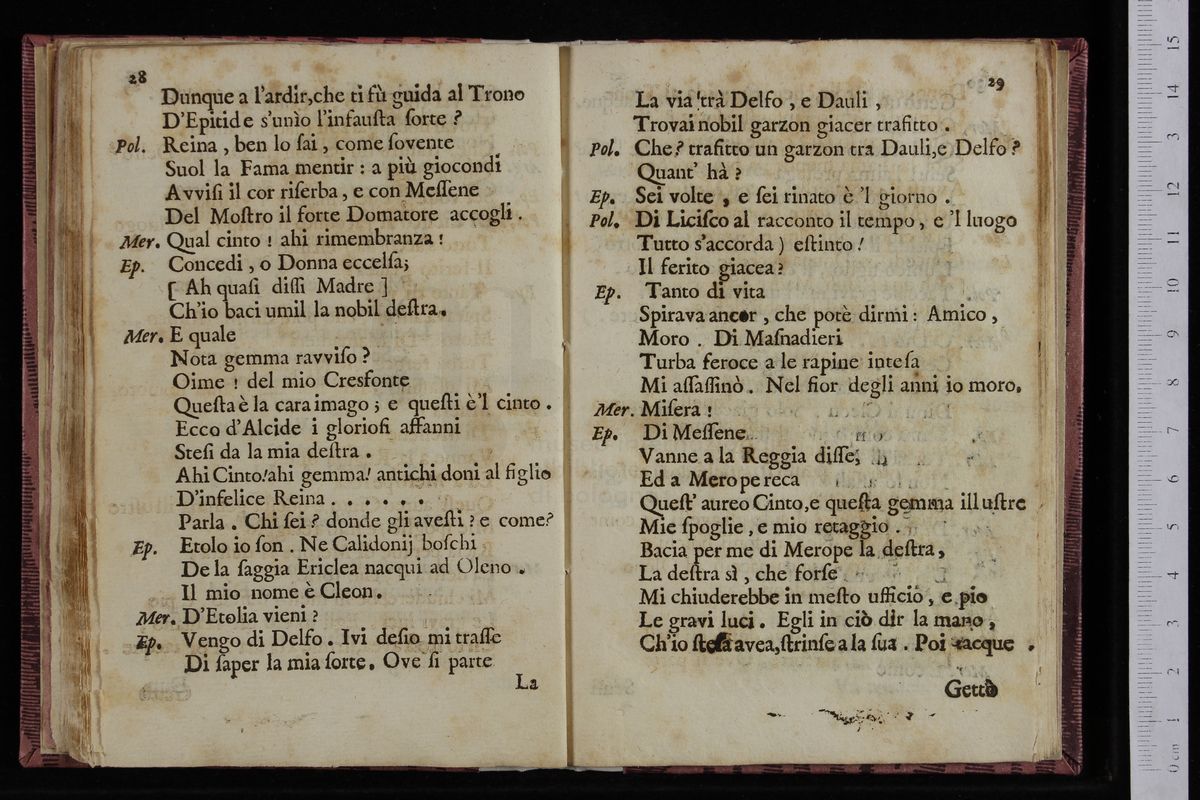 28
Dunque a l'ardir,che ti fù guida al Trono
D'Epitide s'unìo l'infauſta ſorte ?
Pol. Reina , ben lo ſai , come ſovente
Suol la Fama mentir : a più giocondi
Avviſi il cor riſerba , e con Meſſene
Del Moſtro il forte Domatore accogli .
Mer. Qual cinto ! ahi rimembranza !
Ep. Concedi , o Donna eccelſa;
[ Ah quaſi diſſi Madre ]
Ch'io baci umil la nobil deſtra.
Mer. E quale
Nota gemma ravviſo ?
Oime ! del mio Cresfonte
Queſta è la cara imago ; e queſti è'l cinto .
Ecco d'Alcide i glorioſi affanni
Steſi da la mia deſtra .
Ahi Cinto!ahi gemma! antichi doni al figlio
D'infelice Reina . . . . . .
Parla . Chi ſei ? donde gli aveſti ? e come?
Ep. Etolo io ſon . Ne Calidonij boſchi
De la ſaggia Ericlea nacqui ad Oleno .
Il mio nome è Cleon.
Mer. D'Etolia vieni ?
Ep. Vengo di Delfo . Ivi deſio mi traſſe
Di ſaper la mia ſorte. Ove ſi parte
La
29
La via trà Delfo , e Dauli ,
Trovai nobil garzon giacer trafitto .
Pol. Che? trafitto un garzon tra Dauli,e Delfo ?
Quant' hà ?
Ep. Sei volte , e ſei rinato è 'l giorno .
Pol. Di Liciſco al racconto il tempo , e 'l luogo
Tutto s'accorda ) eſtinto !
Il ferito giacea ?
Ep. Tanto di vita
Spirava ancor , che potè dirmi : Amico ,
Moro . Di Maſnadieri
Turba feroce a le rapine inteſa
Mi aſſaſſinò . Nel fior degli anni io moro.
Mer. Miſera !
Ep. Di Meſſene
Vanne a la Reggia diſſe;
Ed a Merope reca
Queſt' aureo Cinto,e queſta gemma illuſtre
Mie ſpoglie , e mio retaggio .
Bacia per me di Merope la deſtra ,
La deſtra sì , che forſe
Mi chiuderebbe in meſto ufficio , e pio
Le gravi luci . Egli in ciò dir la mano ,
Ch'io ſteſa avea,ſtrinſe a la ſua . Poi tacque .
Gettò